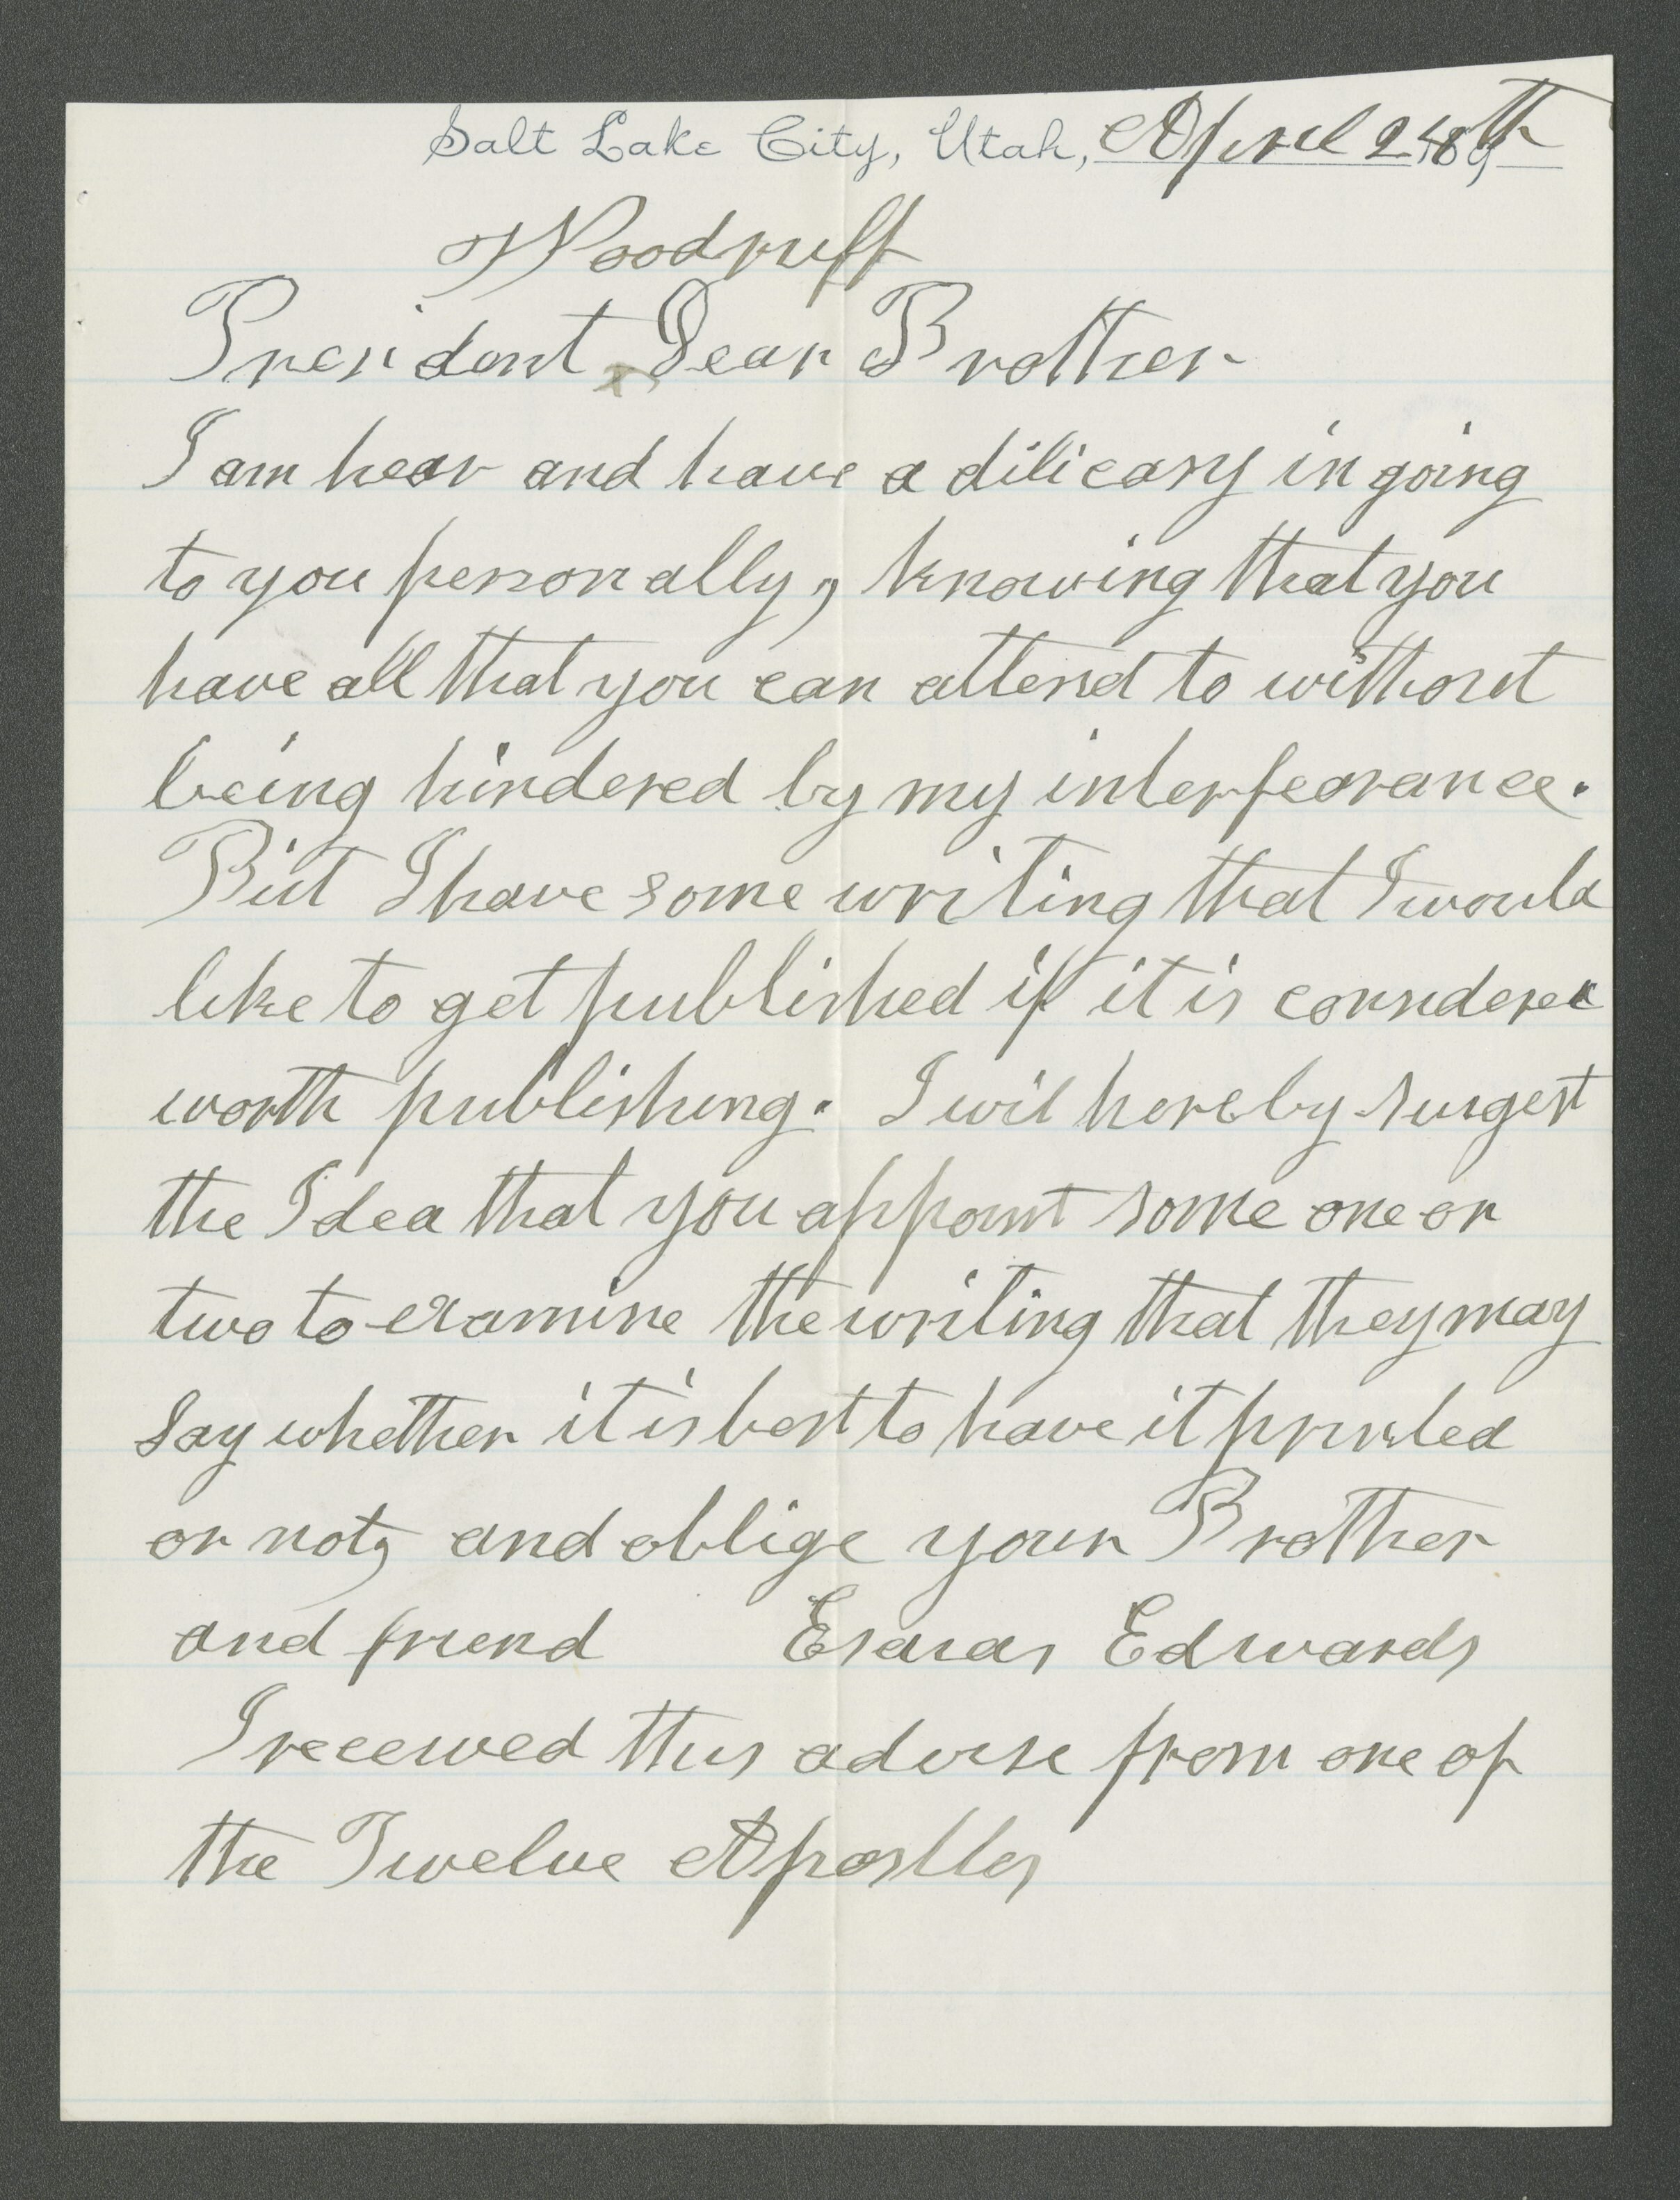 Salt Lake City, Utah, April 24th 189
Woodruff
President Dear Brother
I am hear and have a dilicasy in going
to you personally, knowing that you
have all that you can attend to without
being hindered by my interfearance.
But I have some writing that I would
like to get published if it is considered
worth publishing. I wil hereby surgest
the Idea that you appoint some one or
two to examine the writing that they may
say whether it is best to have it printed
or not, and oblige your Brother
and friend Esaias Edwards
I received this advise from one of
the Twelve Apostles